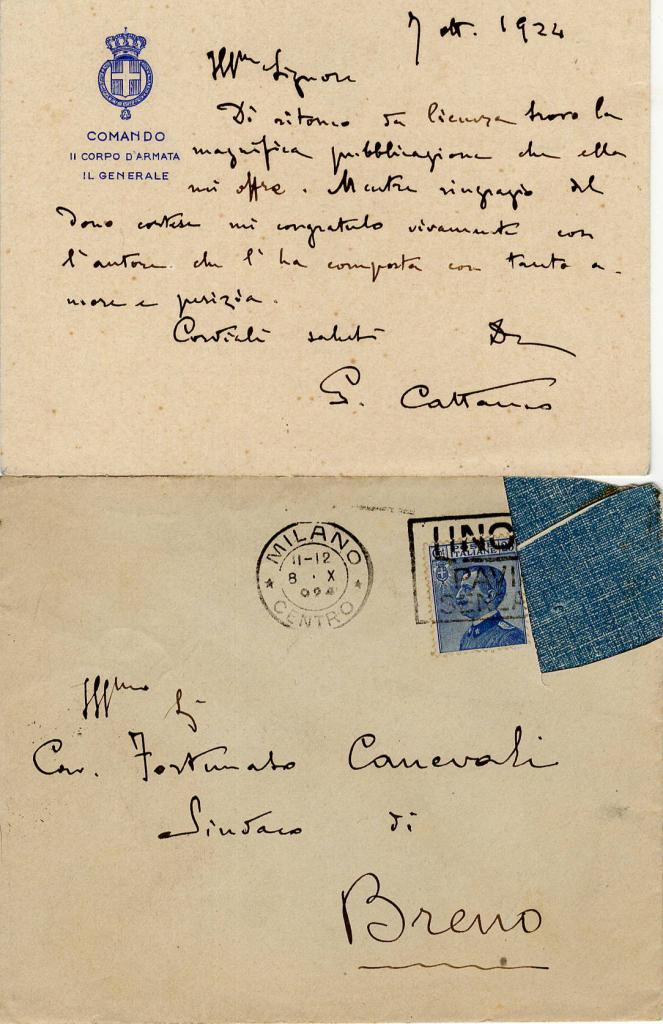 7 ott. 1924
COMANDO
II CORPO D'ARMATA
IL GENERALE
Ill.mo Signore
Di ritorno da licenza trovo la
magnifica pubblicazione che ella
mi offre. Mentre ringrazio del
dono cortese mi congratulo vivamente con
l'autore che l'ha composta con tanto a-
more e perizia.
Cordiali saluti
G. Cattaneo
MILANO
11-12
8 · X
924
CENTRO
ITALIANE
Ill.mo Sig.
Cav. Fortunato Canevali
Sindaco di
Breno